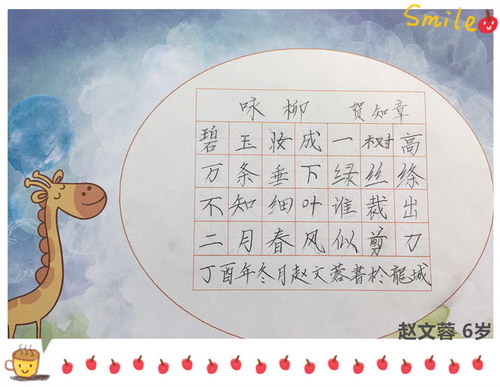 Smile
咏柳 贺知章
碧玉妆成一树高
万条垂下绿丝绦
不知细叶谁裁出
二月春风似剪刀
丁酉年冬月赵文蓉書於龍城
赵文蓉 6岁